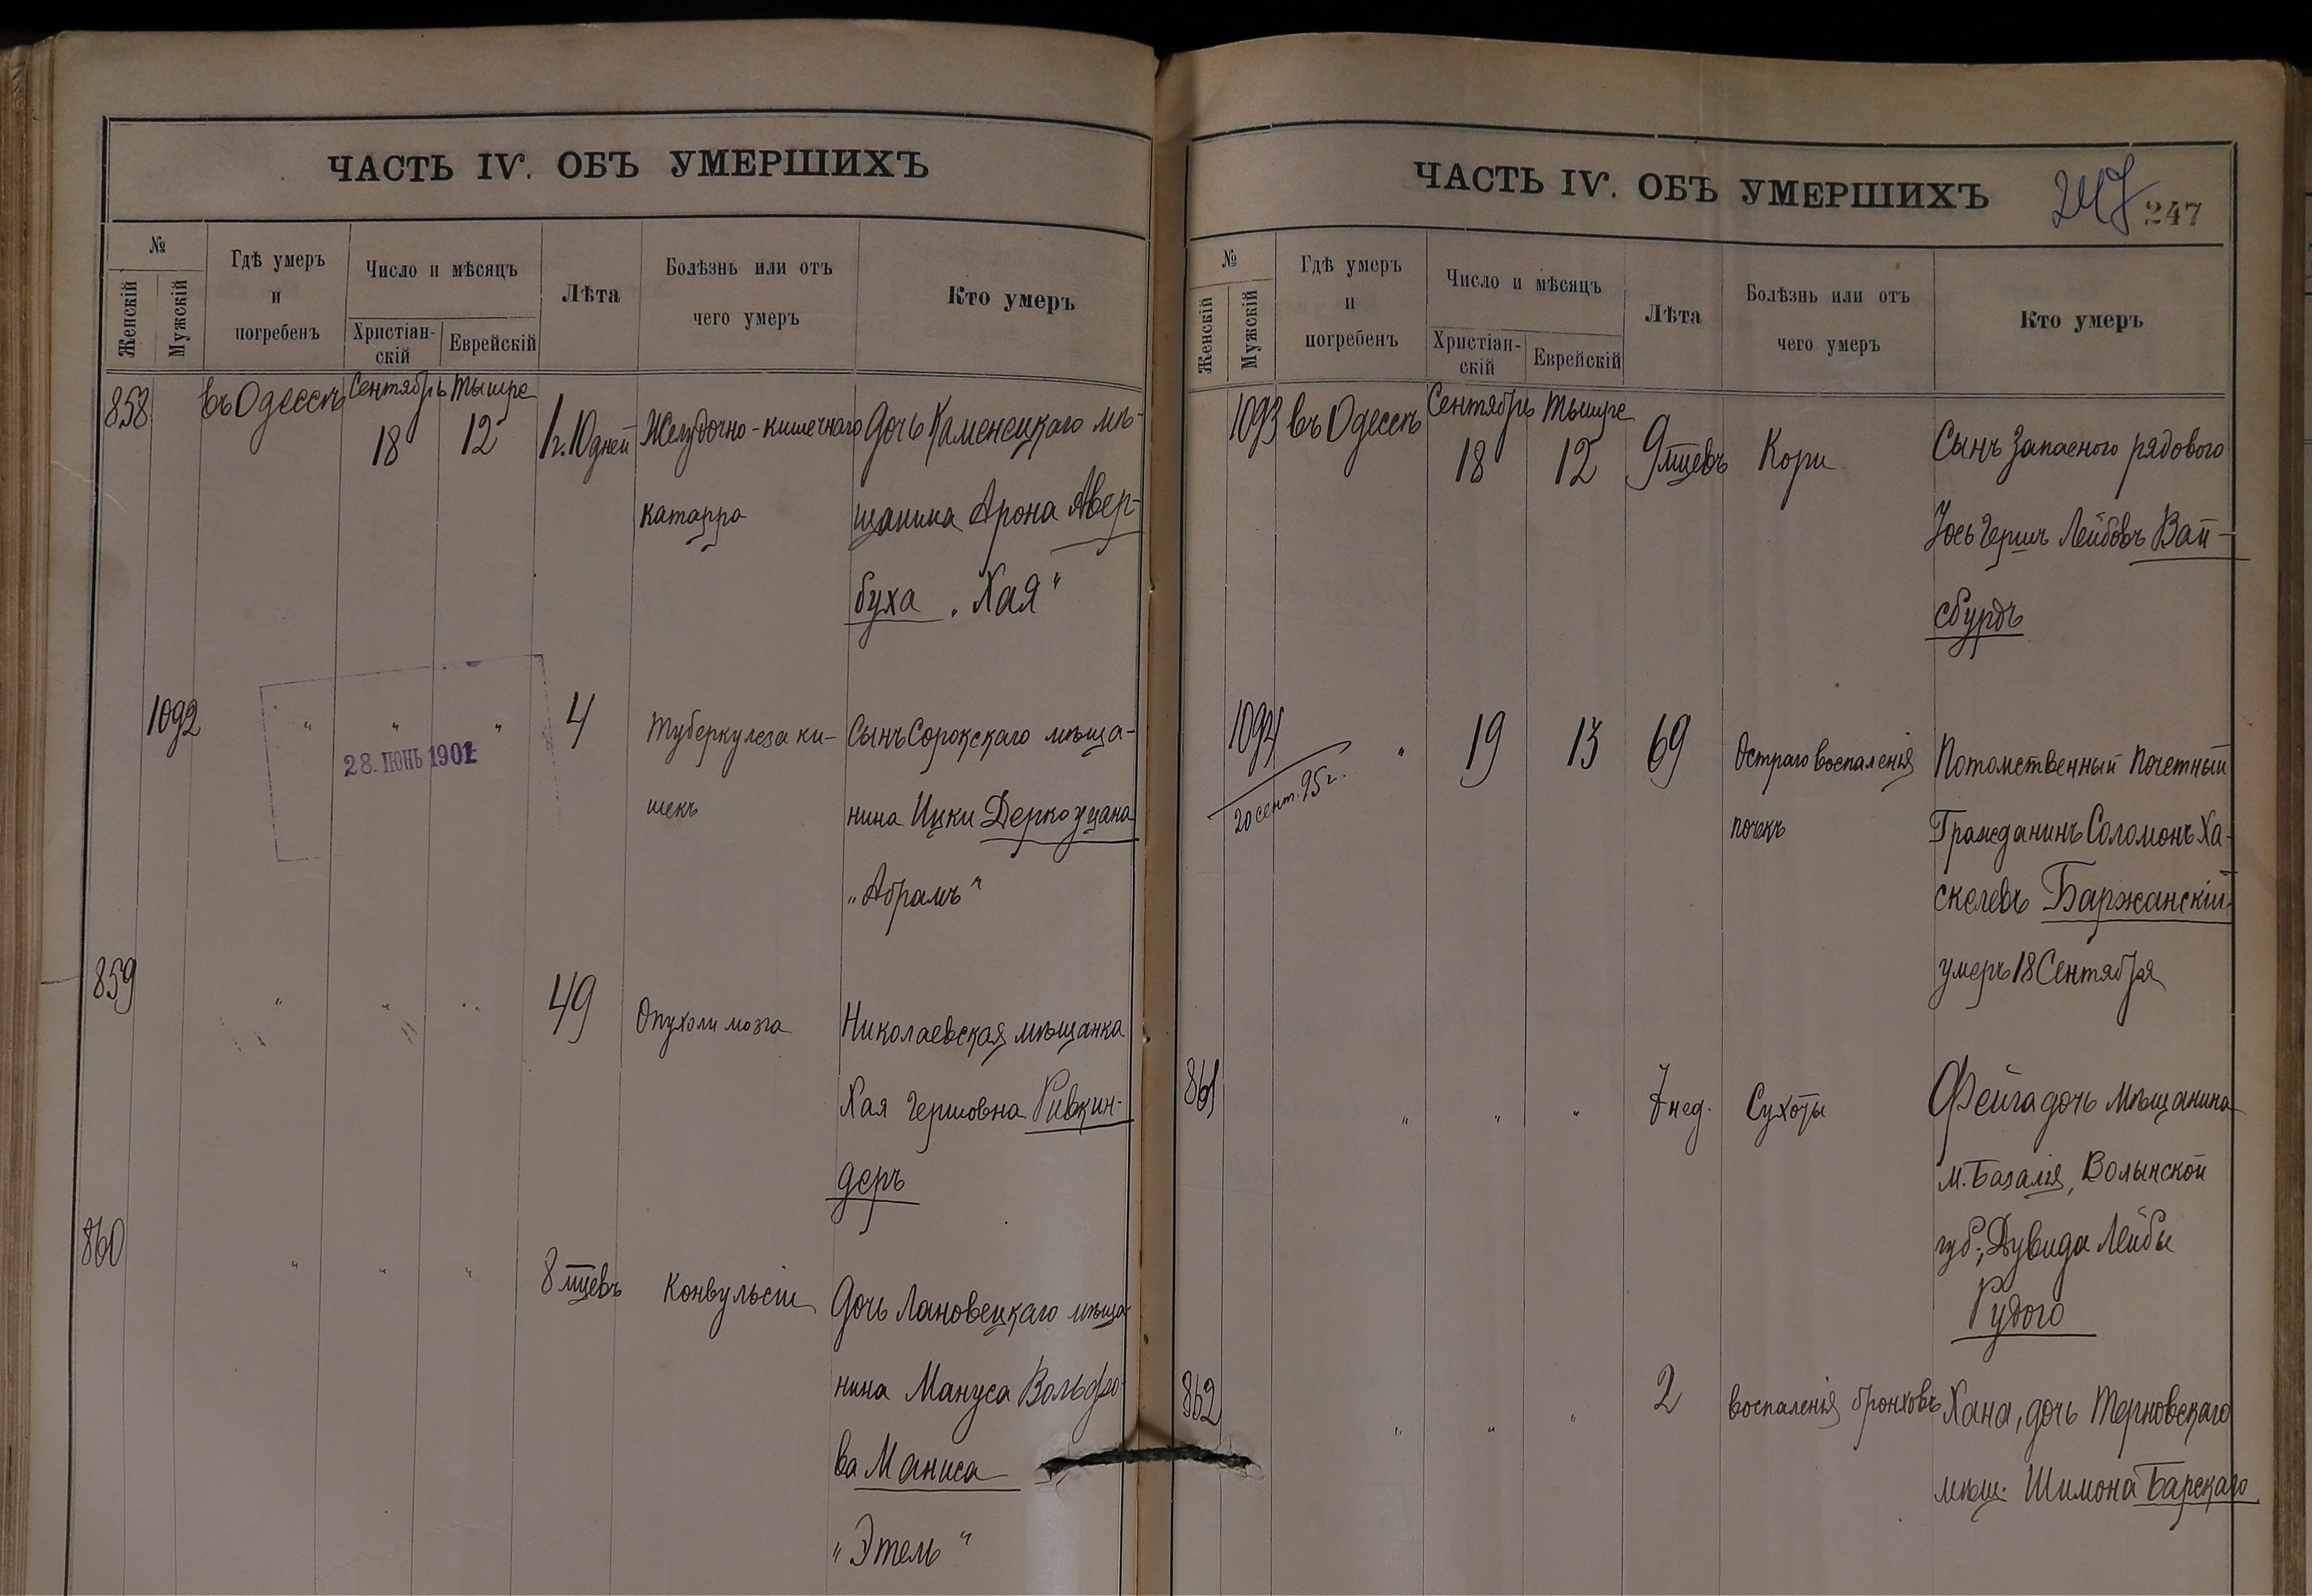 ЧАСТЬ IV. ОБЪ УМЕРШИХЪ
№
Женскій
Мужскій
Гдѣ умеръ
и
погребенъ
Число и мѣсяцъ
Христіан-
скій
Еврейскій
Лѣта
Болѣзнь или отъ
чего умеръ
Кто умеръ
858 въ Одессѣ Сентябрь Тышре
18 12 1 г. 10 дней Желудочно-кишечнаго Дочь Каменецкаго мѣ-
катарра щанина Арона Авер-
буха „Хая"
1092 " " " 4 Туберкулеза ки- Сынъ Сорокскаго мѣща-
28. ІЮНЬ 1901
шекъ нина Ицки Деркоуцана
„Абрамъ"
859 " " " 49 Опухоли мозга Николаевская мѣщанка
Хая Гершовна Ривкин-
деръ
860 " " " 8 мцевъ Конвульсіи Дочь Лановецкаго мѣща-
нина Мануса Вольфо-
ва Маниса
„Этель"
ЧАСТЬ IV. ОБЪ УМЕРШИХЪ
247 247
№
Женскій
Мужскій
Гдѣ умеръ
и
погребенъ
Число и мѣсяцъ
Христіан-
скій
Еврейскій
Лѣта
Болѣзнь или отъ
чего умеръ
Кто умеръ
1093 въ Одессѣ Сентябрь Тышре
18 12 9 мцевъ Кори Сынъ запасного рядового
Іось Гершъ Лейбовъ Вай-
сбурдъ
1094 " 19 13 69 Остраго воспаленія Потомственный Почетный
20 сент. 95 г.
почекъ Гражданинъ Соломонъ Ха-
скелевъ Баржанскій
умеръ 18 Сентября
861 " " " 7 нед. Сухоты Фейга дочь мѣщанина
м. Базалія, Волынской
губ., Дувида Лейбы
Рудого
862 " " " 2 воспаленія бронховъ Хана, дочь Терновскаго
мѣщ. Шимона Барскаго